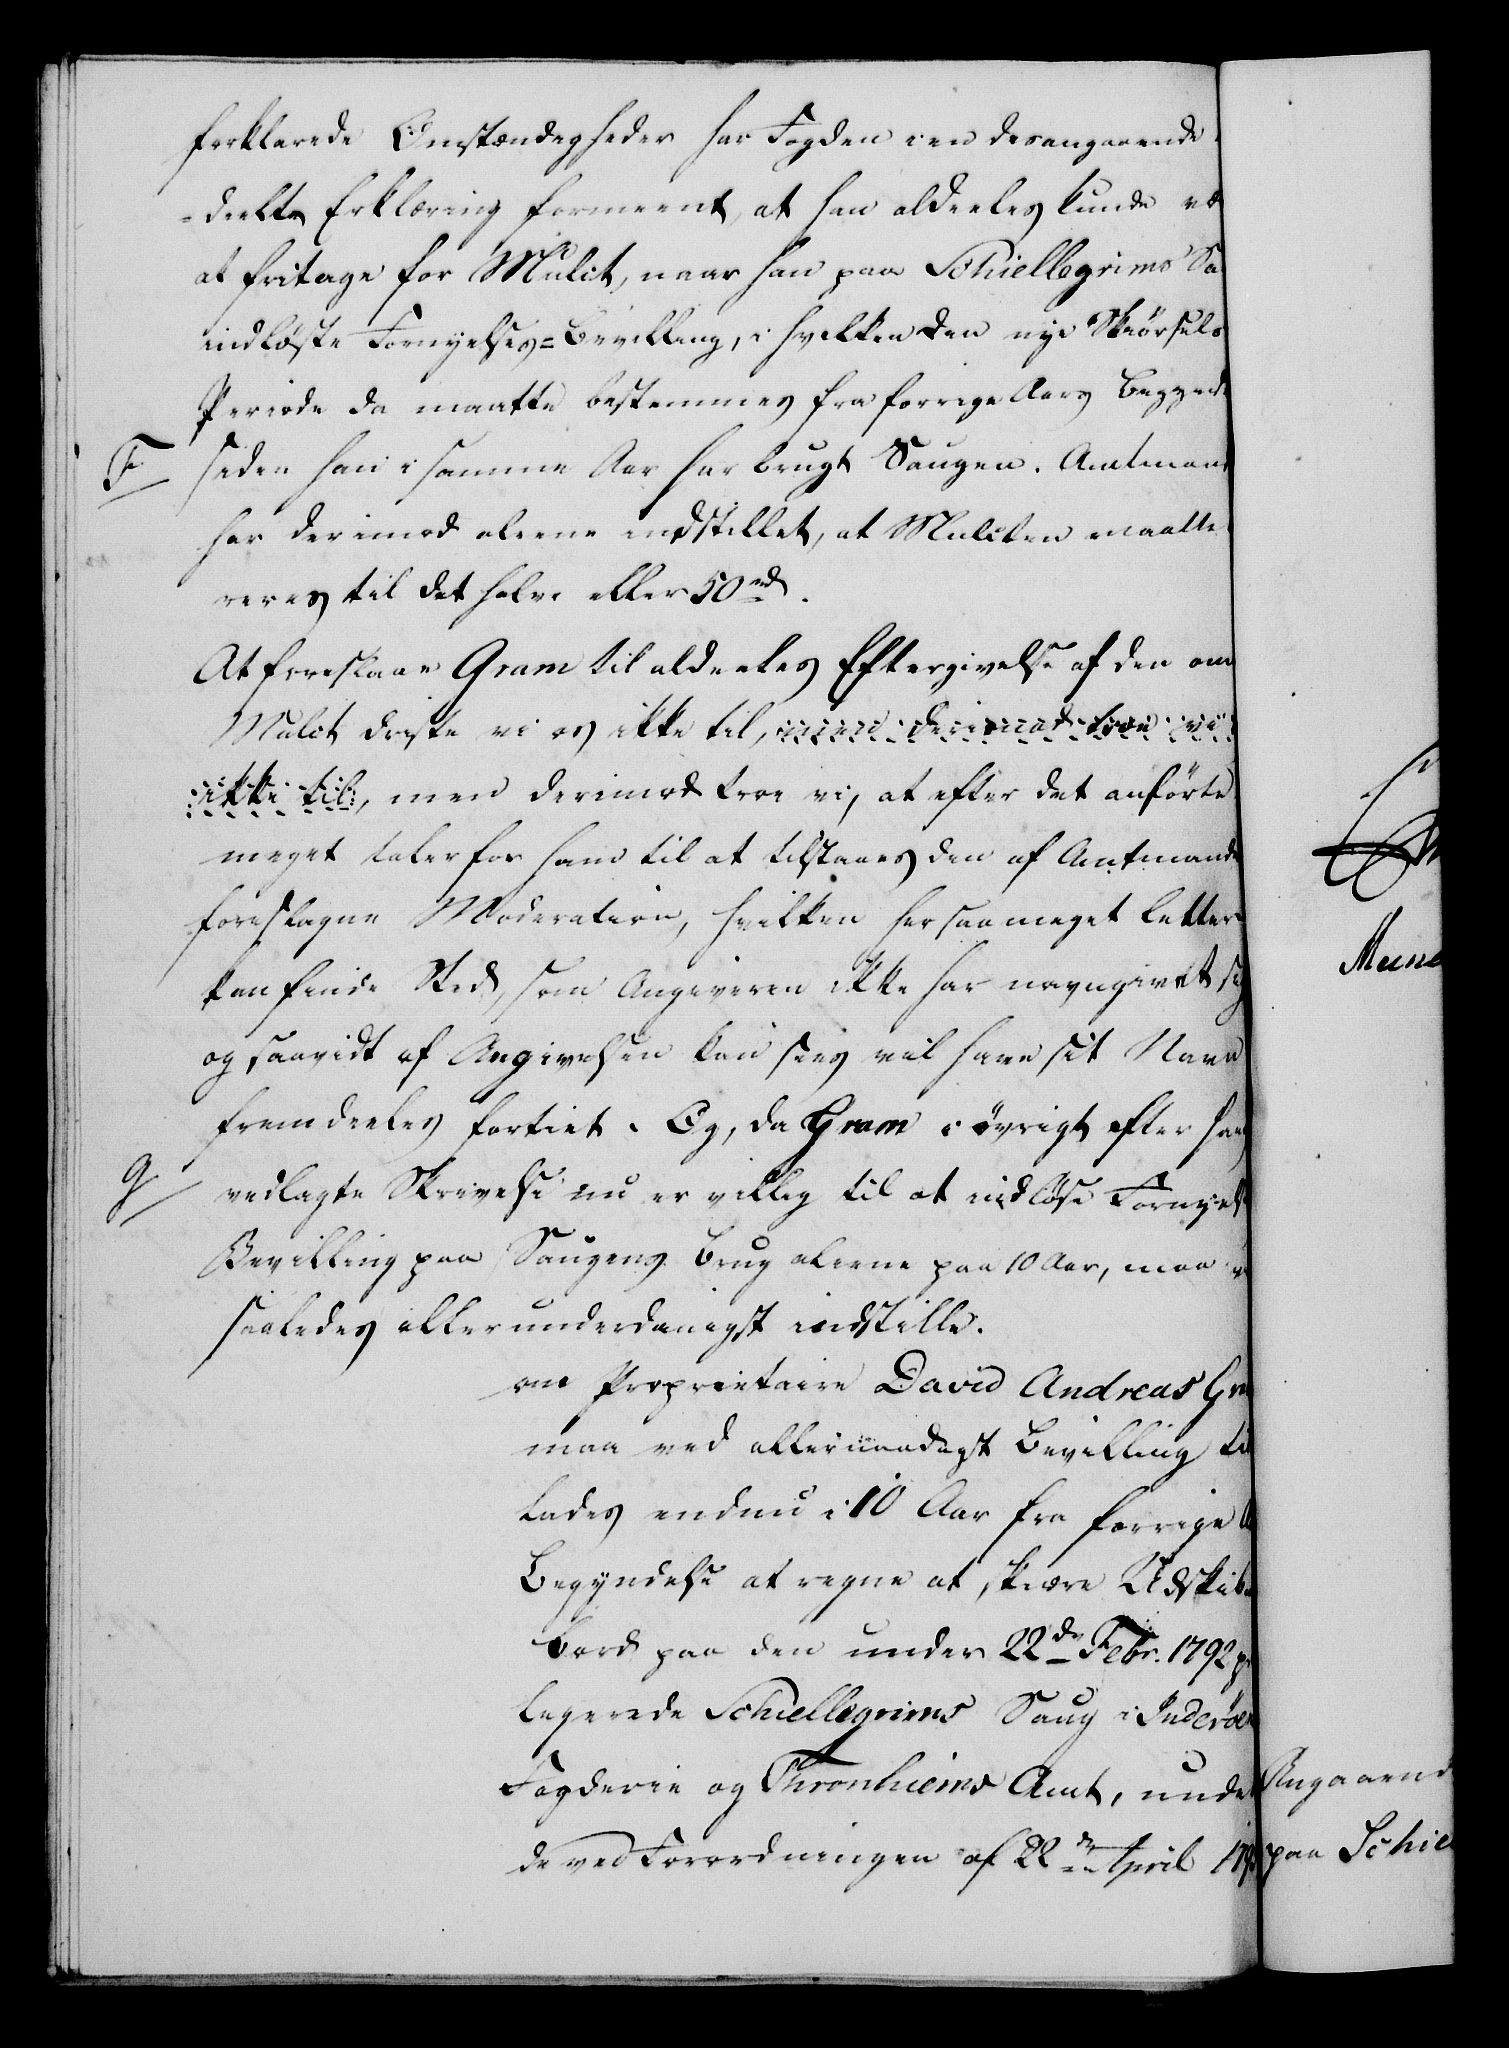 forklarede Omstændigheder har Fogden i en desangaaende
-deelte Erklæring formeent, at han aldeeles kunde væ
at fritage for Mulct, naar han paa Schiellegrims Sa
indløste Fornyelses=Bevilling, i hvilken den nye Skiørsels
Periode da maatte bestemmes fra forrige Aars Begynd
F siden han i samme Aar har brugt Saugen. Amtmand
har derimod aleene indstillet, at Mulcten maatte
reres til det halve eller 50 rd.
At foreslaae Gram til aldeeles Eftergivelse af den om
Mulct driste vi os ikke til, men derimod troe vi
ikke til, men derimod troe vi, at efter det anførte
meget taler for ham til at tilstaaes den af Amtmande
foreslagne Moderation, hvilken her saameget lettere
kan finde Sted, som Angiveren ikke har navngivet sig
og saavidt af Angivelsen kan sees vil have sit Navn
fremdeeles fortiet. Og, da Gram i øvrigt efter hans
G vedlagte Skrivelse nu er villig til at indløse Fornyels
Bevilling paa Saugens Brug aleene paa 10 Aar, maa v
saaledes allerunderdanigst indstille.
om Proprietaire David Andreas Gra
maa ved allernaadigst Bevilling til
lades endnu i 10 Aar fra forrige A
Begyndelse at regne at skiære Udskib
bord paa den under 22de Febr. 1792 p
legerede Schiellegrims Saug i Inderøe
Fogderie og Thronhiems Amt, unde
de ved Forordningen af 22de April 179
Mun
Angaaend
paa Schie